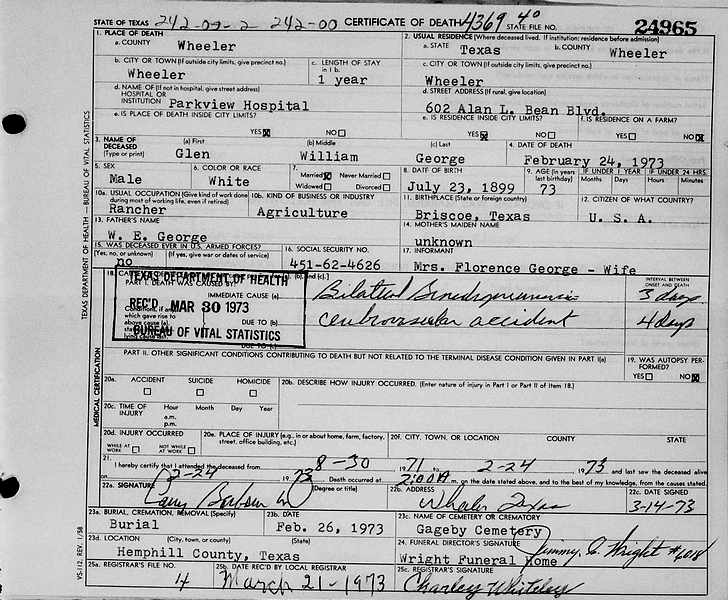 STATE OF TEXAS 242-09-2 242-00 CERTIFICATE OF DEATH 4369 40 STATE FILE NO. 24965
1. PLACE OF DEATH 2. USUAL RESIDENCE (Where deceased lived. If institution: residence before admission)
a. COUNTY Wheeler a. STATE Texas b. COUNTY Wheeler
b. CITY OR TOWN (If outside city limits, give precinct no.) c. LENGTH OF STAY in 1 b. c. CITY OR TOWN (If outside city limits, give precinct no.)
Wheeler 1 year Wheeler
d. NAME OF (If not in hospital, give street address) HOSPITAL OR INSTITUTION Parkview Hospital d. STREET ADDRESS (If rural, give location) 602 Alan L. Bean Blvd.
e. IS PLACE OF DEATH INSIDE CITY LIMITS? e. IS RESIDENCE INSIDE CITY LIMITS? f. IS RESIDENCE ON A FARM?
YES NO YES NO YES NO
3. NAME OF DECEASED (Type or print) (a) First (b) Middle (c) Last 4. DATE OF DEATH
Glen William George February 24, 1973
5. SEX 6. COLOR OR RACE 7. Married Never Married Widowed Divorced 8. DATE OF BIRTH 9. AGE (In years last birthday) IF UNDER 1 YEAR IF UNDER 24 HRS. Months Days Hours Minutes
Male White July 23, 1899 73
10a. USUAL OCCUPATION (Give kind of work done during most of working life, even if retired) 10b. KIND OF BUSINESS OR INDUSTRY 11. BIRTHPLACE (State or foreign country) 12. CITIZEN OF WHAT COUNTRY?
Rancher Agriculture Briscoe, Texas U. S. A.
13. FATHER'S NAME 14. MOTHER'S MAIDEN NAME
W. E. George unknown
15. WAS DECEASED EVER IN U.S. ARMED FORCES? (Yes, no, or unknown) (If yes, give war or dates of service) 16. SOCIAL SECURITY NO. 17. INFORMANT
no 451-62-4626 Mrs. Florence George - Wife
18. INTERVAL BETWEEN ONSET AND DEATH
PART I. DEATH WAS CAUSED BY:
TEXAS DEPARTMENT OF HEALTH
IMMEDIATE CAUSE (a) Bilateral Bronchopneumonia 3 days
REC'D MAR 30 1973
Conditions, if any, which gave rise to above cause (a) DUE TO (b) cerebrovascular accident 4 days
BUREAU OF VITAL STATISTICS
DUE TO (c)
PART II. OTHER SIGNIFICANT CONDITIONS CONTRIBUTING TO DEATH BUT NOT RELATED TO THE TERMINAL DISEASE CONDITION GIVEN IN PART I(a) 19. WAS AUTOPSY PERFORMED?
YES NO
20a. ACCIDENT SUICIDE HOMICIDE 20b. DESCRIBE HOW INJURY OCCURRED. (Enter nature of injury in Part I or Part II of item 18.)
20c. TIME OF INJURY Hour Month Day Year
a.m.
p.m.
20d. INJURY OCCURRED WHILE AT WORK NOT WHILE AT WORK 20e. PLACE OF INJURY (e.g., in or about home, farm, factory, street, office building, etc.) 20f. CITY, TOWN, OR LOCATION COUNTY STATE
21. I hereby certify that I attended the deceased from 8-30 1971 to 2-24 1973 and last saw the deceased alive
on 2-24 1973 Death occurred at 2:00A m. on the date stated above, and to the best of my knowledge, from the causes stated.
22a. SIGNATURE (Degree or title) 22b. ADDRESS Wheeler Texas 22c. DATE SIGNED 3-14-73
23a. BURIAL, CREMATION, REMOVAL (Specify) 23b. DATE 23c. NAME OF CEMETERY OR CREMATORY
Burial Feb. 26, 1973 Gageby Cemetery
23d. LOCATION (City, town, or county) (State) 24. FUNERAL DIRECTOR'S SIGNATURE Jimmy G. Wright #6018
Hemphill County, Texas Wright Funeral Home
25a. REGISTRAR'S FILE NO. 25b. DATE REC'D BY LOCAL REGISTRAR 25c. REGISTRAR'S SIGNATURE
4 March 21-1973 Charley Whiteley
TEXAS DEPARTMENT OF HEALTH — BUREAU OF VITAL STATISTICS
MEDICAL CERTIFICATION
VS-112, REV. 1/58